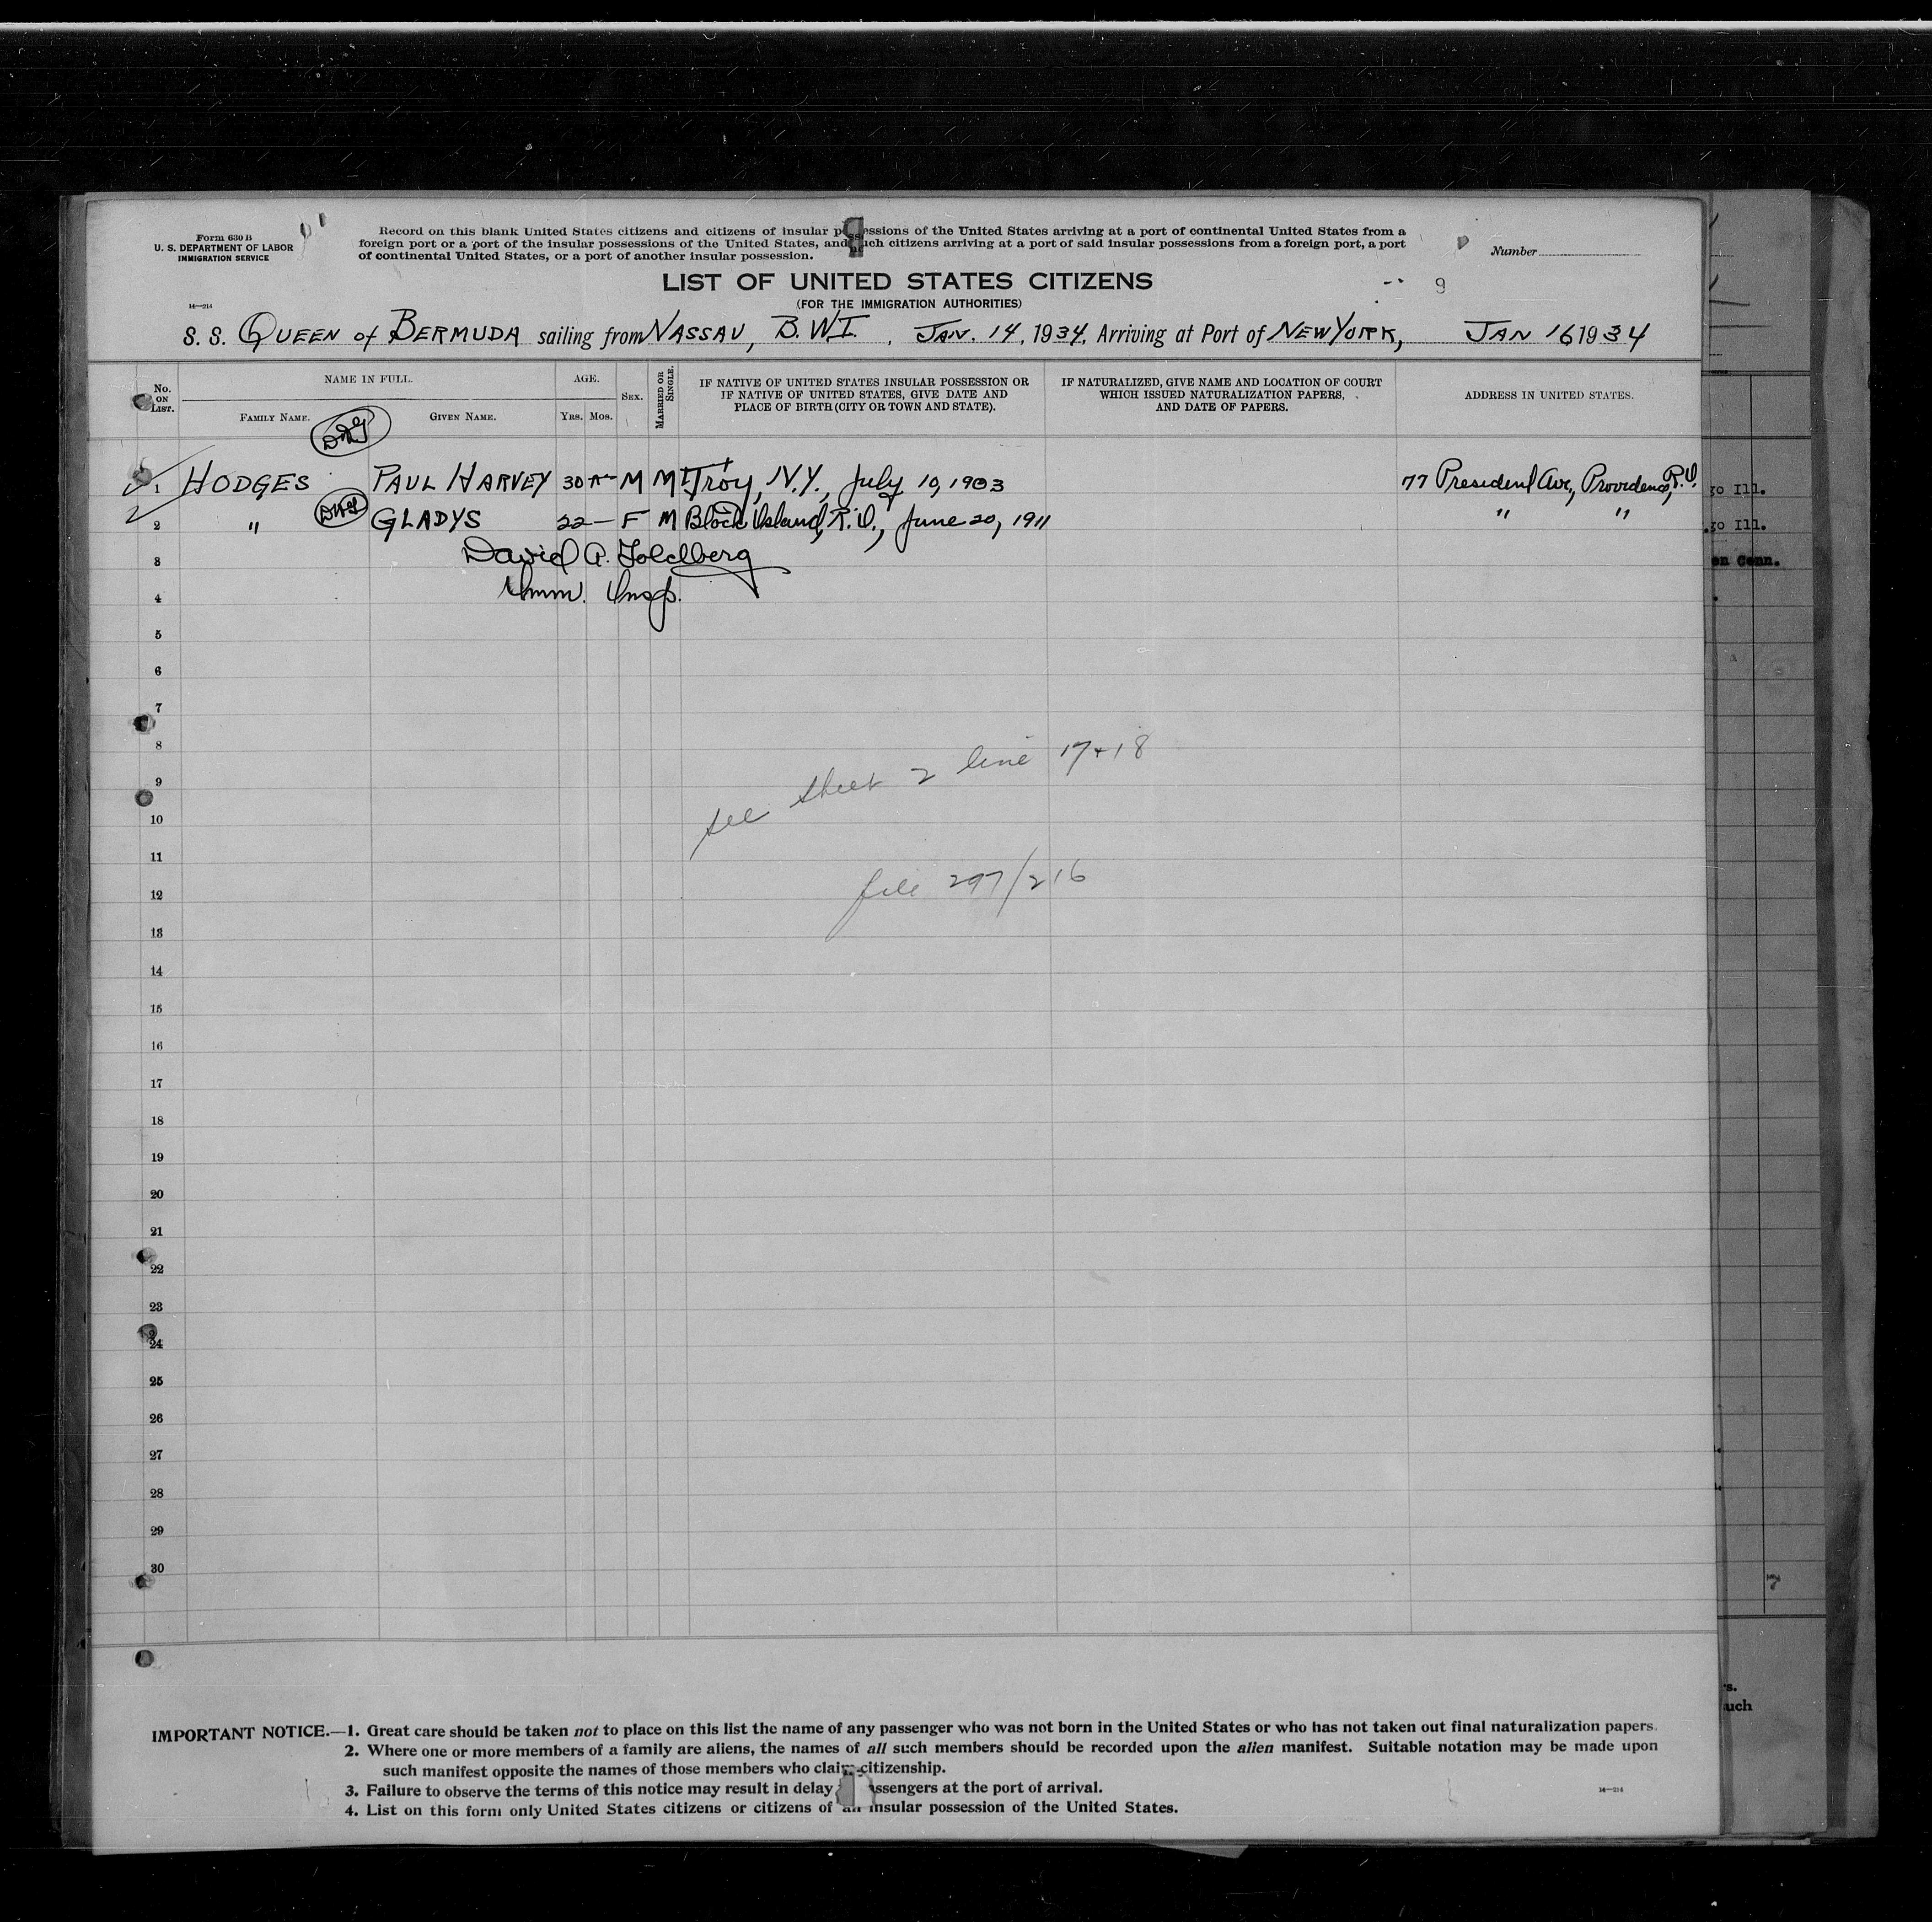 Form 630 B
U. S. DEPARTMENT OF LABOR
IMMIGRATION SERVICE
14—214
Record on this blank United States citizens and citizens of insular possessions of the United States arriving at a port of continental United States from a
foreign port or a port of the insular possessions of the United States, and such citizens arriving at a port of said insular possessions from a foreign port, a port
of continental United States, or a port of another insular possession.
Number
LIST OF UNITED STATES CITIZENS
9
(FOR THE IMMIGRATION AUTHORITIES)
S. S. QUEEN of BERMUDA sailing from NASSAU, B.W.I. , JAN. 14, 1934, Arriving at Port of NEW YORK, JAN 16 1934
No. ON LIST.
NAME IN FULL.
FAMILY NAME. GIVEN NAME.
AGE.
Yrs. Mos.
SEX.
MARRIED OR SINGLE.
IF NATIVE OF UNITED STATES INSULAR POSSESSION OR
IF NATIVE OF UNITED STATES, GIVE DATE AND
PLACE OF BIRTH (CITY OR TOWN AND STATE).
IF NATURALIZED, GIVE NAME AND LOCATION OF COURT
WHICH ISSUED NATURALIZATION PAPERS,
AND DATE OF PAPERS.
ADDRESS IN UNITED STATES.
DAG
1 HODGES PAUL HARVEY 30 M M Troy, N.Y., July 10, 1903 77 President Ave., Providence, R.I.
go Ill.
DAG
2 " GLADYS 22 — F M Block Island, R.I., June 20, 1911 " "
go Ill.
3 David A. Goldberg
en Conn.
4 Imm. Insp.
5
6
7
8
9
see sheet 2 line 17+18
10
11
12
file 297/216
13
14
15
16
17
18
19
20
21
22
23
24
25
26
27
28
29
30
7
IMPORTANT NOTICE.—1. Great care should be taken not to place on this list the name of any passenger who was not born in the United States or who has not taken out final naturalization papers.
2. Where one or more members of a family are aliens, the names of all such members should be recorded upon the alien manifest. Suitable notation may be made upon
such manifest opposite the names of those members who claim citizenship.
3. Failure to observe the terms of this notice may result in delay ssengers at the port of arrival.
4. List on this form only United States citizens or citizens of an insular possession of the United States.
14—214
s.
uch